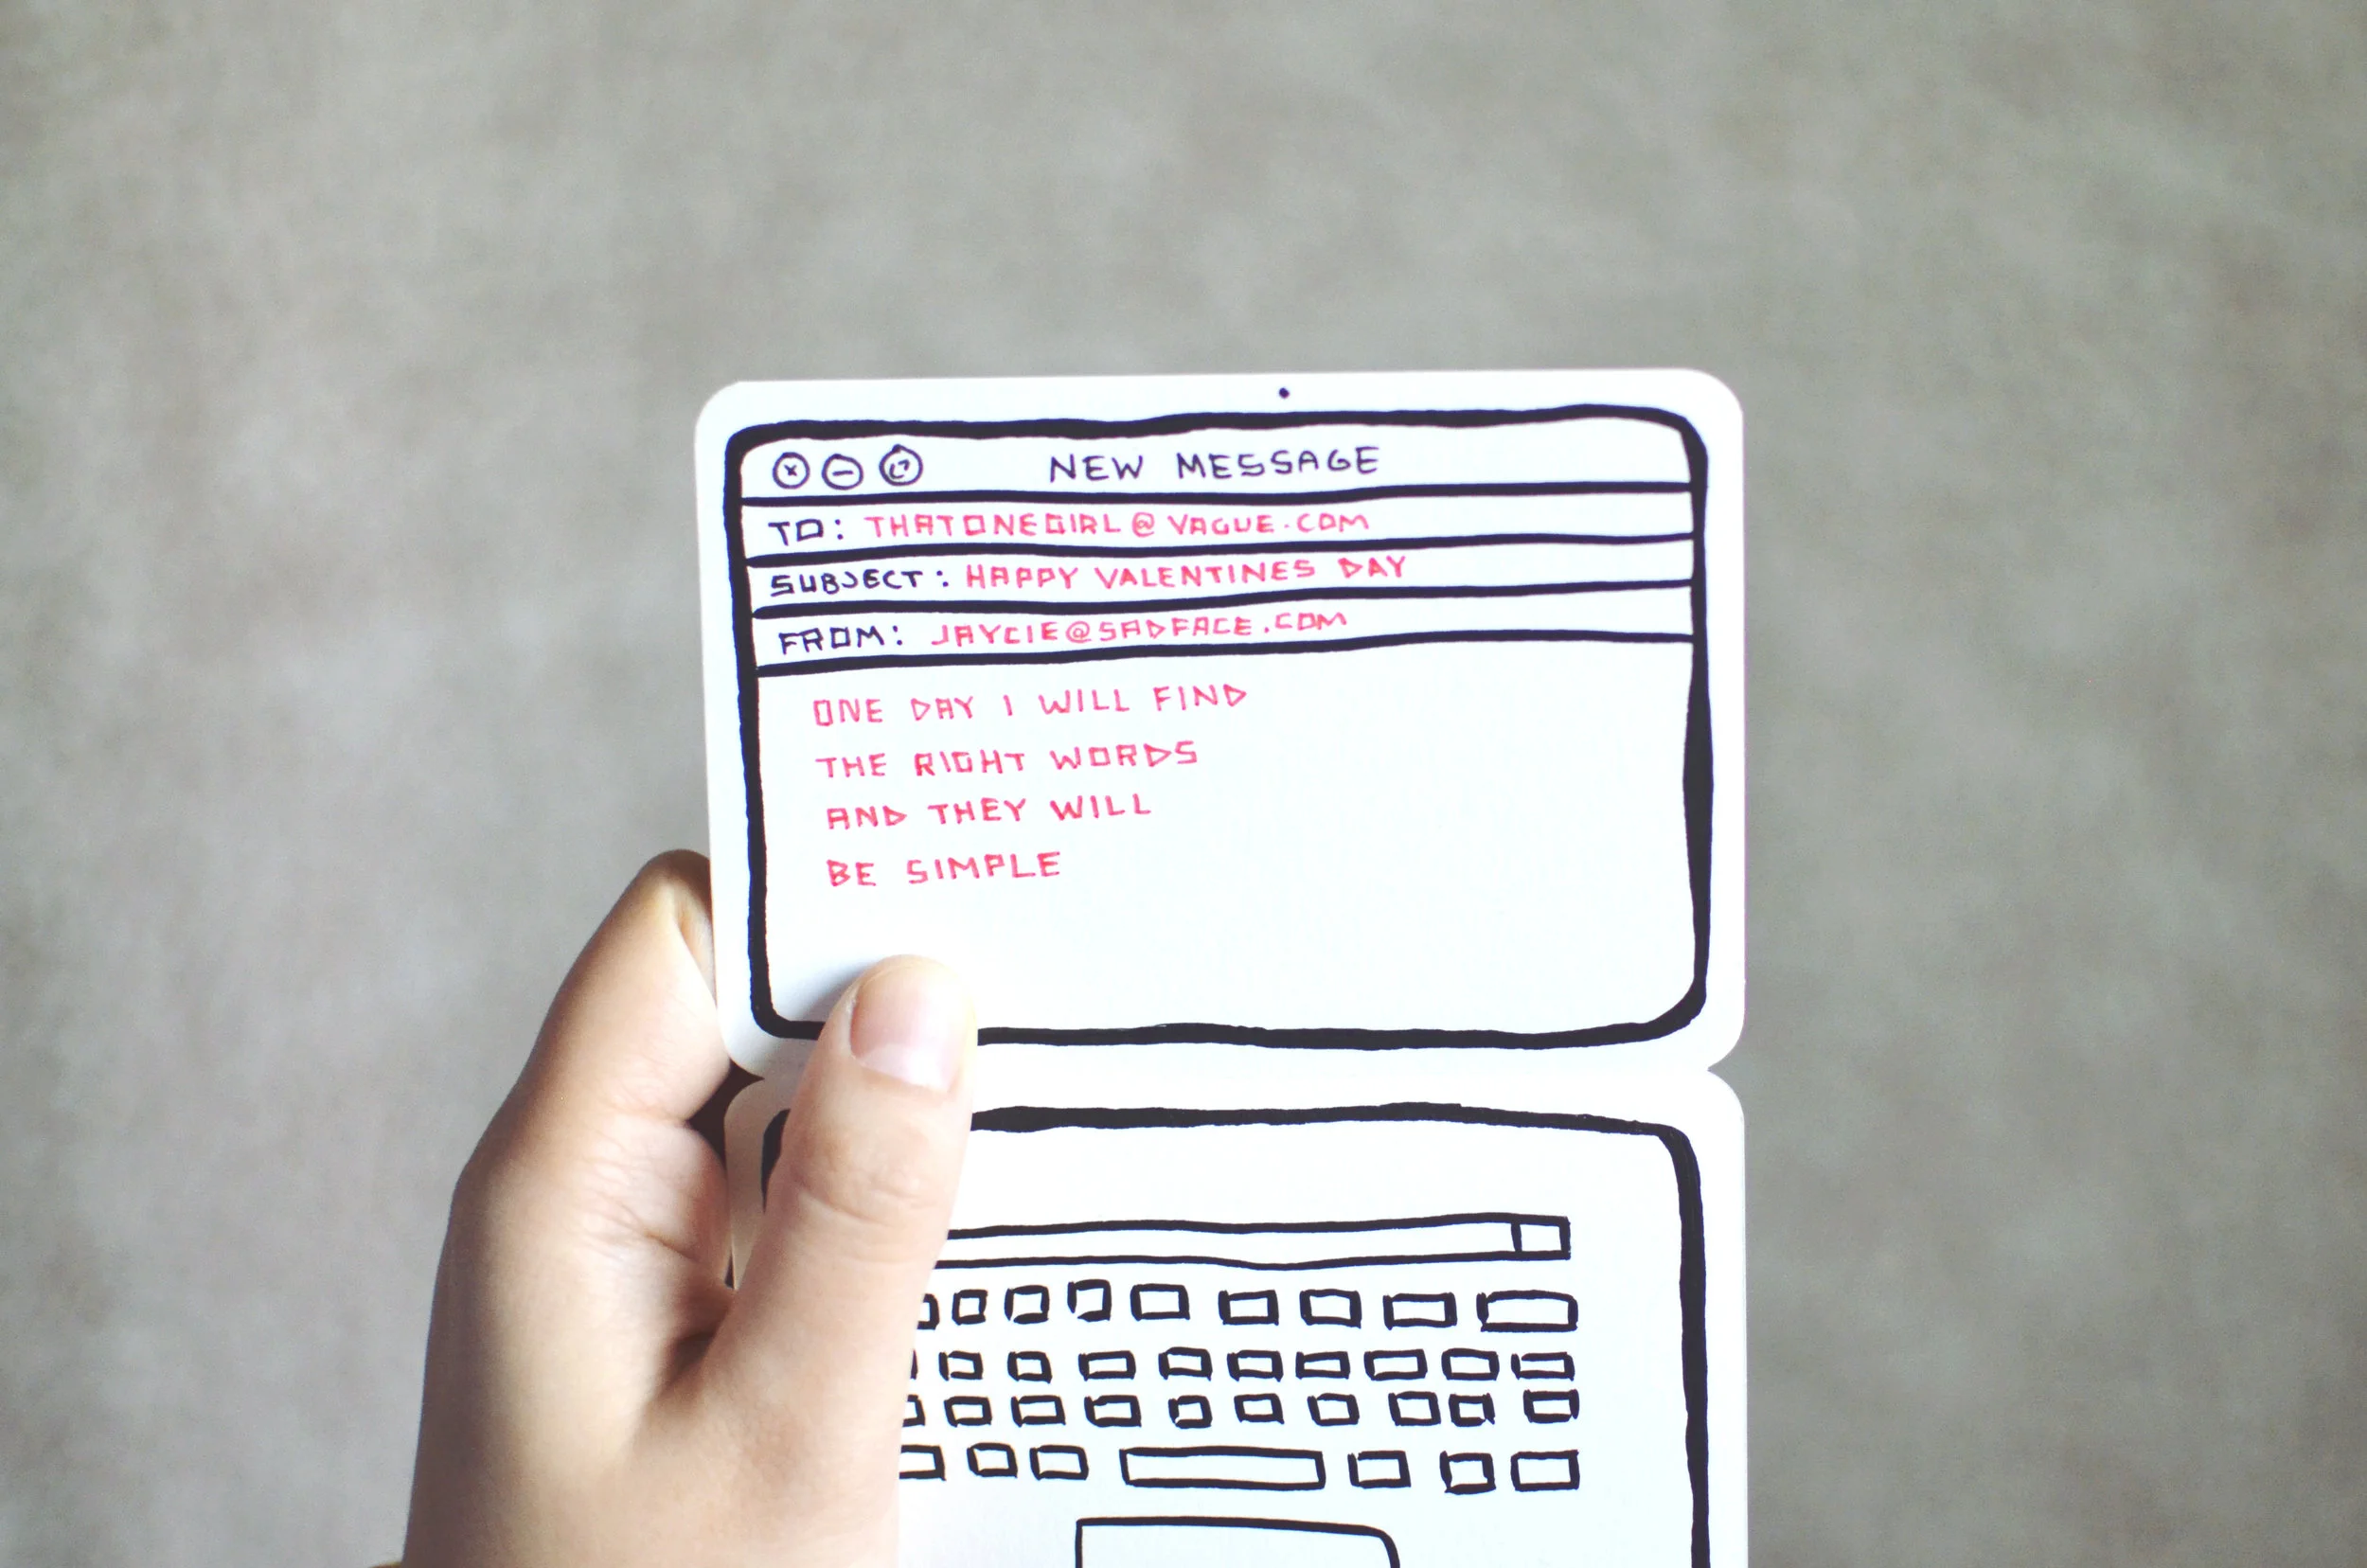 NEW MESSAGE
TO: THATONEGIRL@VAGUE.COM
SUBJECT: HAPPY VALENTINES DAY
FROM: JAYCIE@SADFACE.COM
ONE DAY I WILL FIND
THE RIGHT WORDS
AND THEY WILL
BE SIMPLE